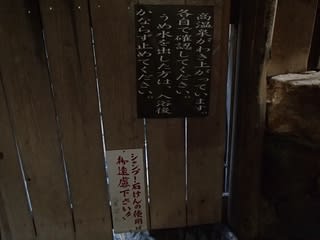 高温泉がわき上がっています。
各自で確認してください。
うめ水を出した方は、入浴後
かならず止めてください。
シャンプー石けんの使用は
御遠慮下さい。